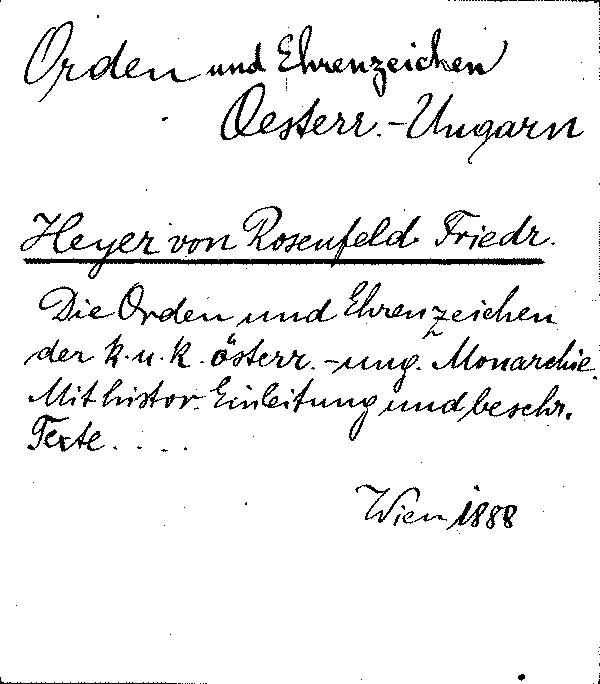 Orden und Ehrenzeichen
Oesterr.-Ungarn
Heyer von Rosenfeld Friedr.
Die Orden und Ehrenzeichen
der k. u. k. österr.-ung. Monarchie.
Mit histor. Einleitung und beschr.
Texte....
Wien 1888